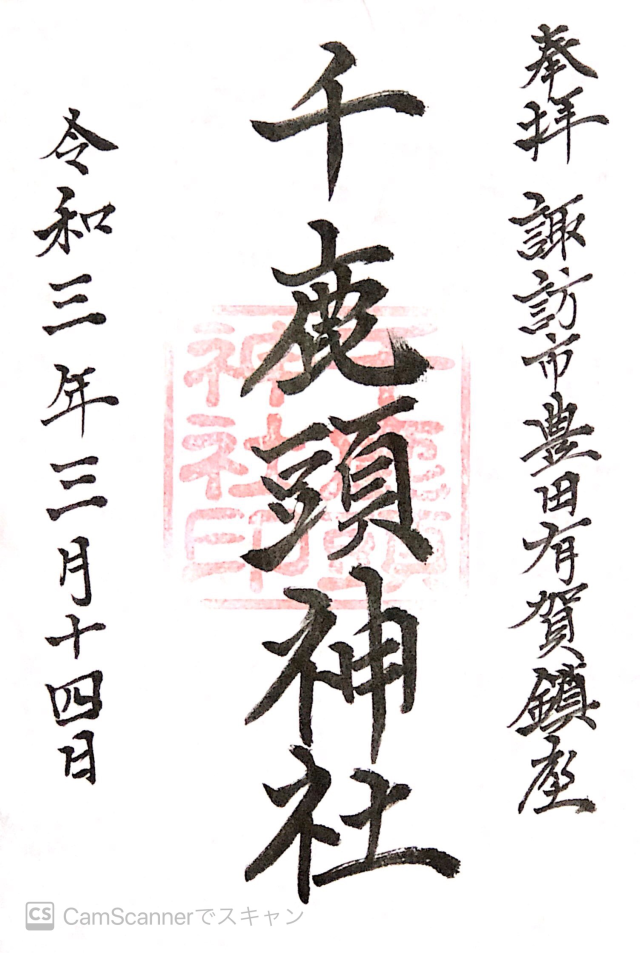 奉拝 諏訪市豊田有賀鎮座
千鹿頭神社
令和三年三月十四日
千鹿頭
神社印
CS CamScannerでスキャン